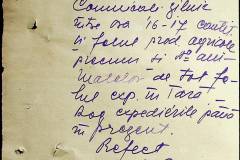 Comunicați zilnic
între ora 16-17 cantit.
și felul prod. agricole
precum și N° ani-
malelor de tot fe-
lul exp. în țară
Log expedițiile până
în prezent.
Prefect